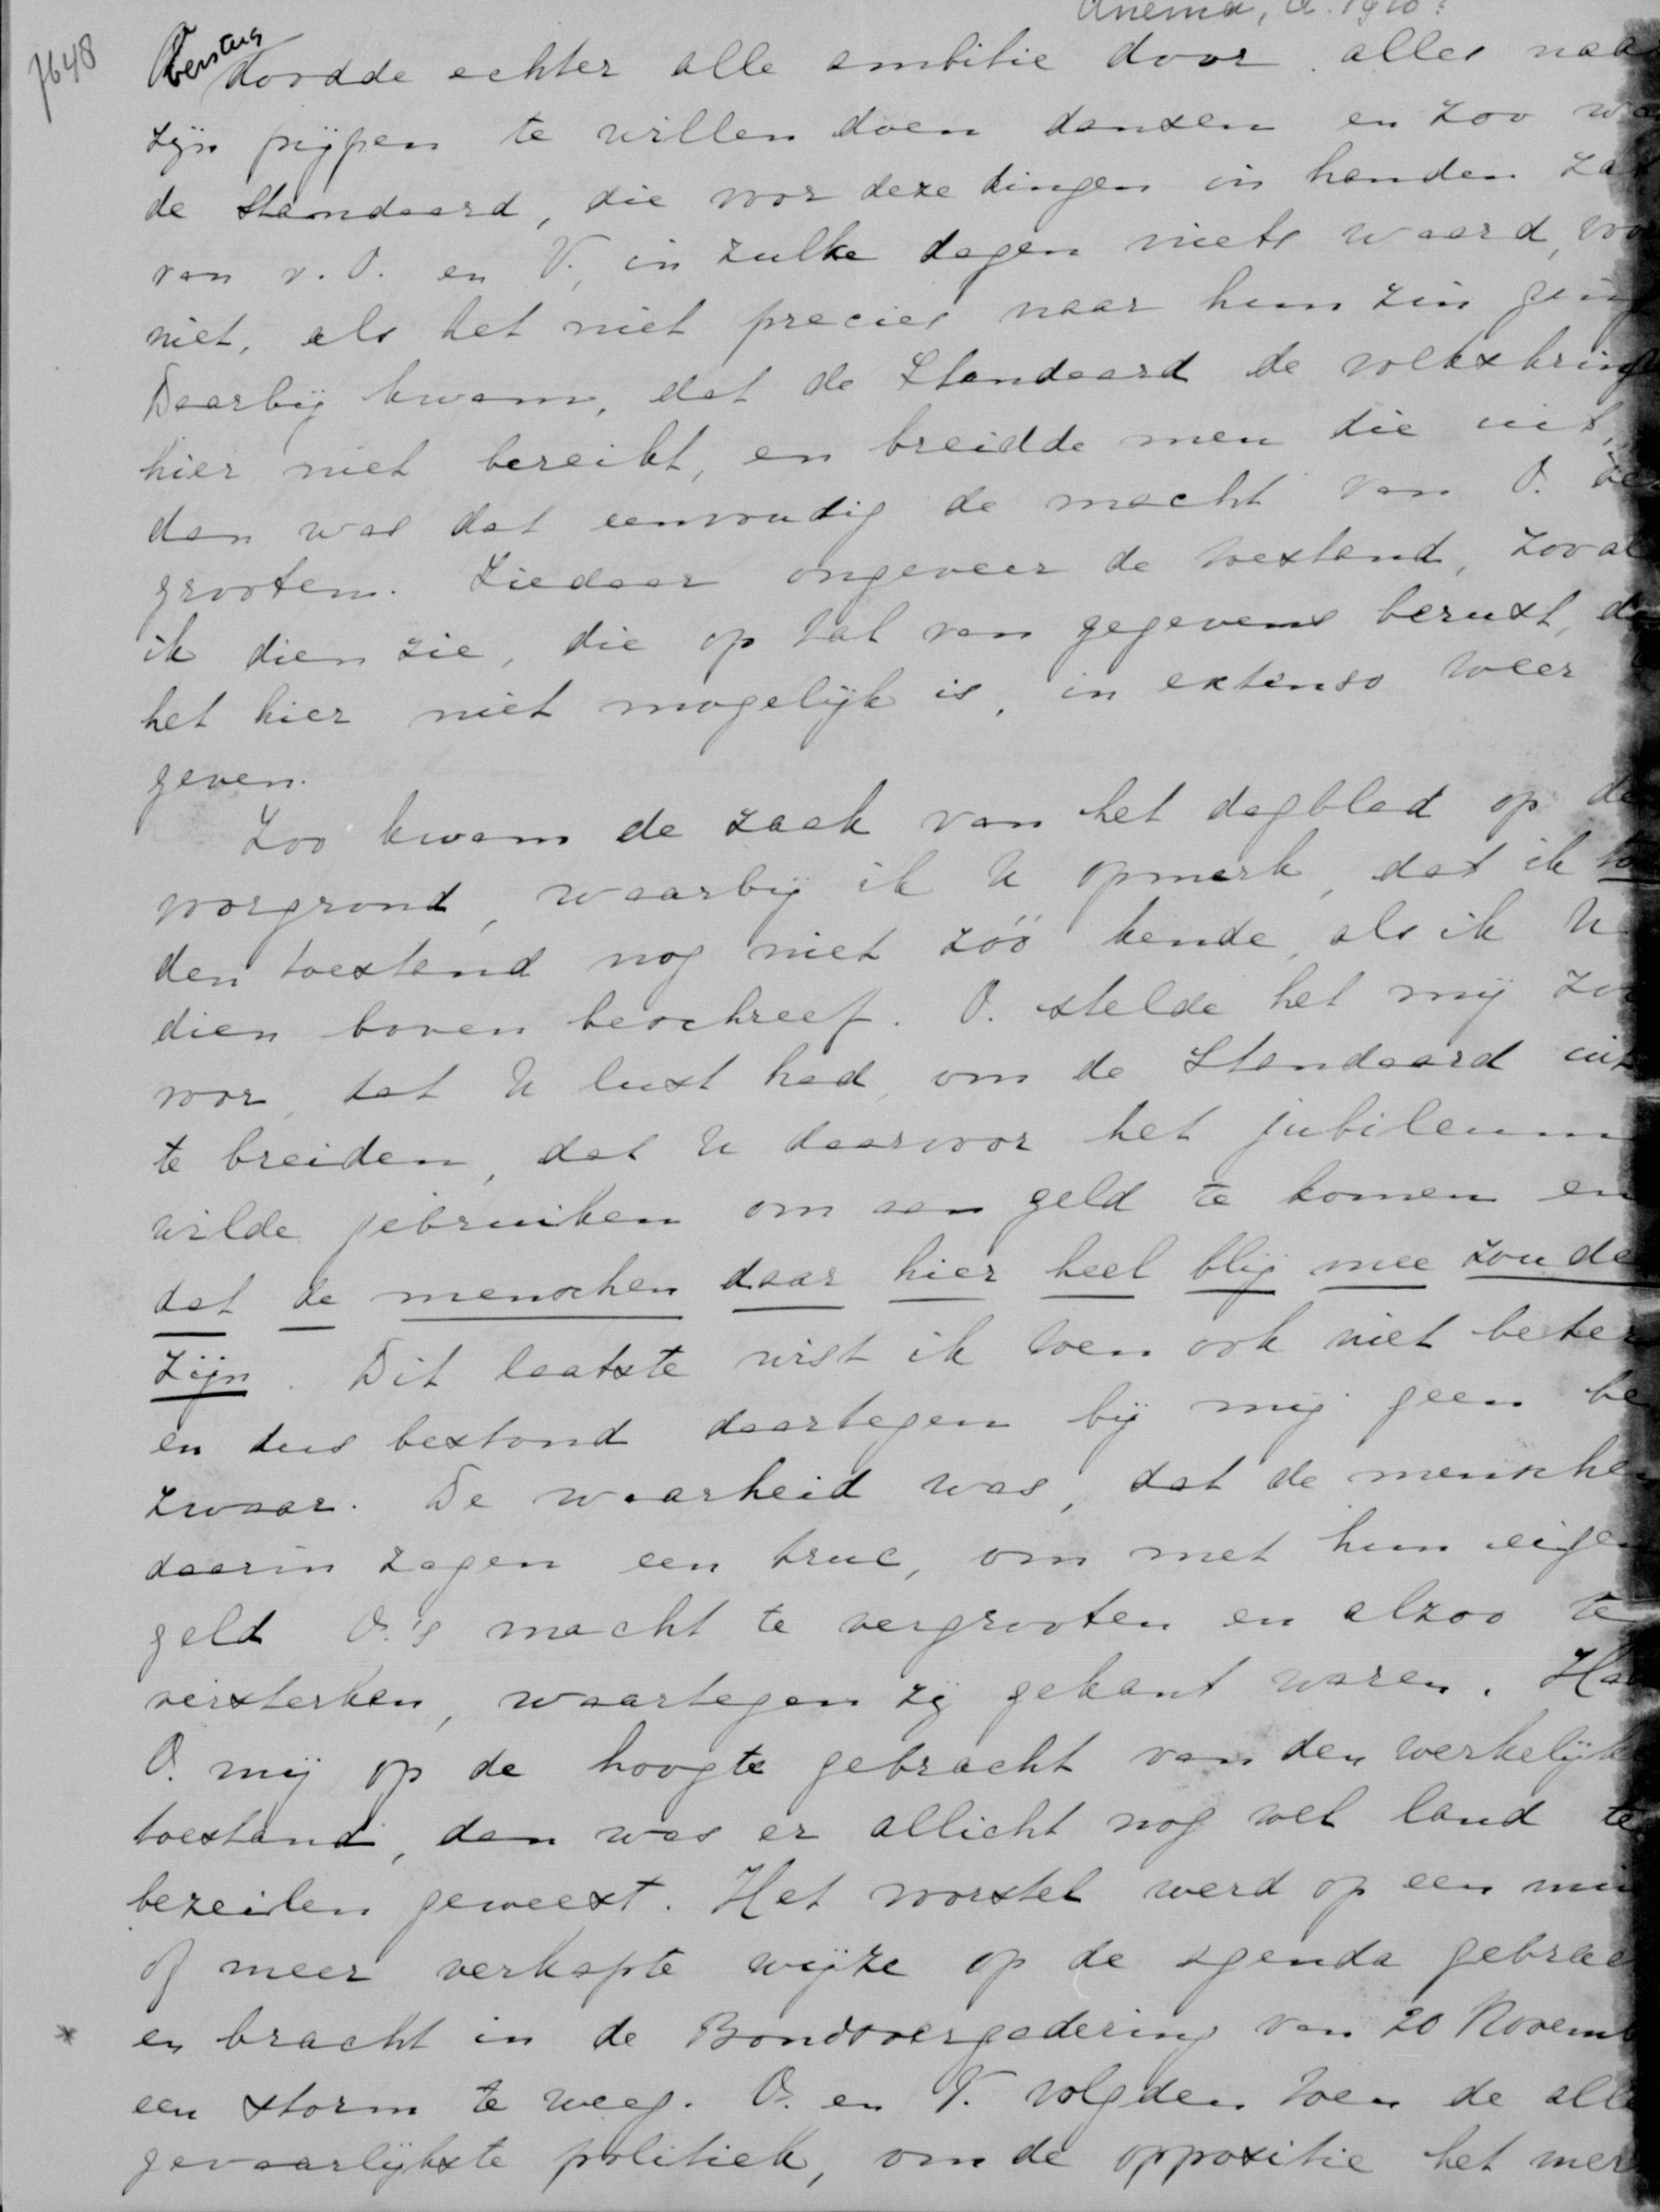 Anema, A. 1910?
7648
O. doodde echter alle ambitie door alles naa
zijn pijpen te willen doen dansen en zoo wa
de Standaard, die voor deze dingen in handen zat
van v. O. en V., in zulke dagen niets waard, voo
niet, als het niet precies naar hun zin ging
Daarbij kwam, dat de Standaard de volkskringe
hier niet bereikt, en breidde men die uit,
dan was dat eenvoudig de macht van O. ver
grooten. Ziedaar ongeveer de toestand, zooal
ik dien zie, die op tal van gegevens berust, di
het hier niet mogelijk is, in extenso weer
geven.
Zoo kwam de zaak van het dagblad op de
voorgrond, waarbij ik U opmerk, dat ik to
den toestand nog niet zóó kende, als ik U
dien boven beschreef. O. stelde het mij zoo
voor, dat U lust had, om de Standaard uit
te breiden, dat U daarvoor het jubileum
wilde gebruiken om aan geld te komen en
dat de menschen daar hier heel blij mee zoude
zijn. Dit laatste wist ik toen ook niet beter
en dus bestond daartegen bij mij geen be
zwaar. De waarheid was, dat de mensche
daarin zagen een truc, om met hun eigen
geld O.'s macht te vergrooten en alzoo te
versterken, waartegen zij gekant waren. Had
O. mij op de hoogte gebracht van den werkelijke
toestand, dan was er allicht nog wel land te
bezeilen geweest. Het voorstel werd op een min
of meer verkapte wijze op de agenda gebrac
* en bracht in de Bondsvergadering van 20 Novemb
een storm te weeg. O. en V. volgden toen de alle
gevaarlijkste politiek, om de oppositie het mer